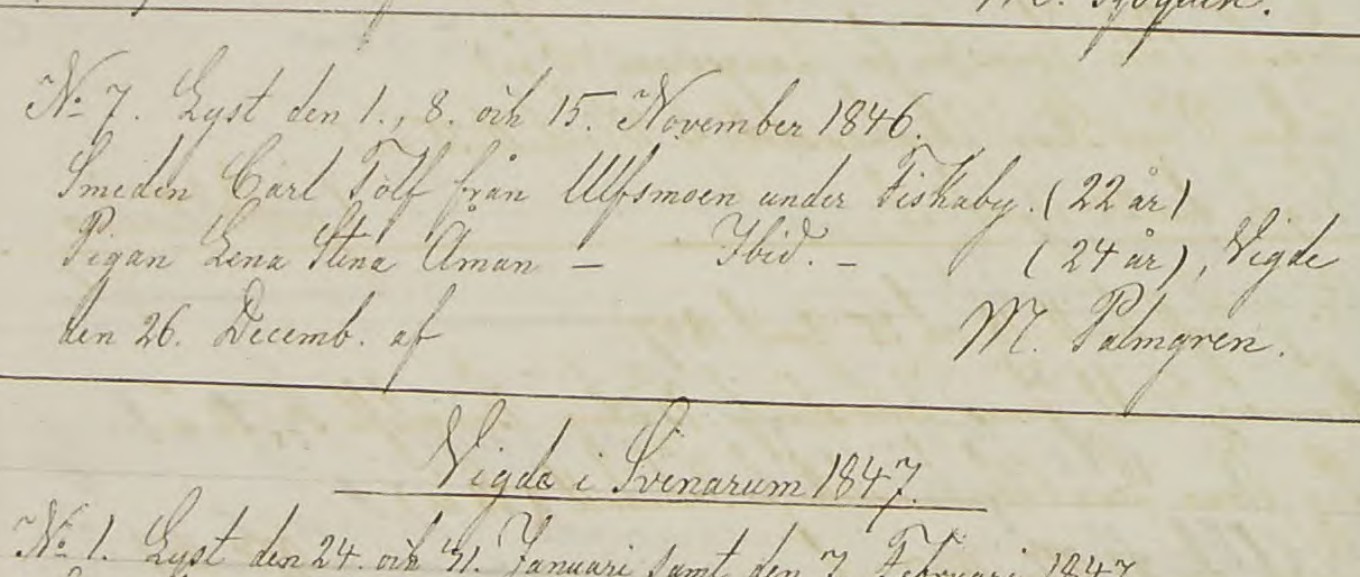 N.o 7. Lyst den 1., 8. och 15. November 1846.
Smeden Carl Tolf från Ulfsmoen under Fiskaby. (22 år)
Pigan Lena Stina Åman – Ibid. – (24 år), Vigde
den 26. Decemb. af M. Palmgren.
Vigda i Svenarum 1847.
N.o 1. Lyst den 24. och 31. Januari samt den 7. Februari 1847